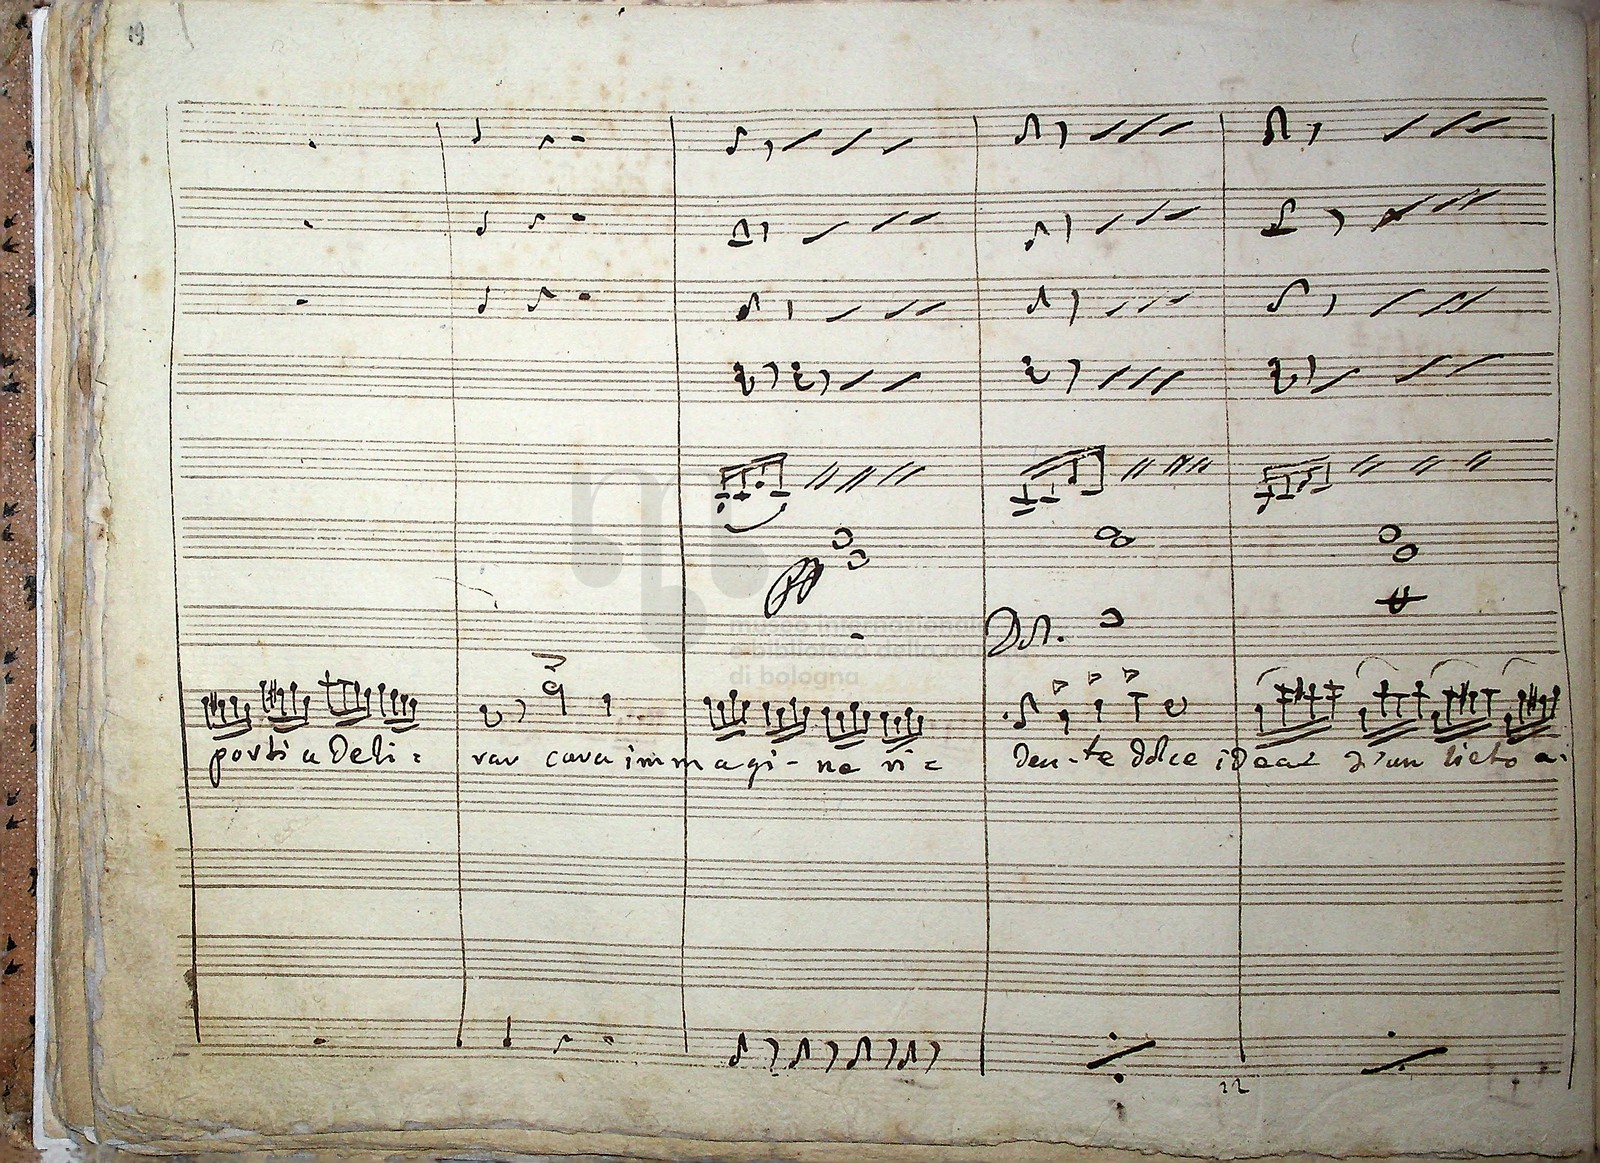 19
museo internazionale
e biblioteca della musica
di bologna
porti a Deli= rar cara immagi-ne ri= den-te dolce idea d'un lieto a-
22